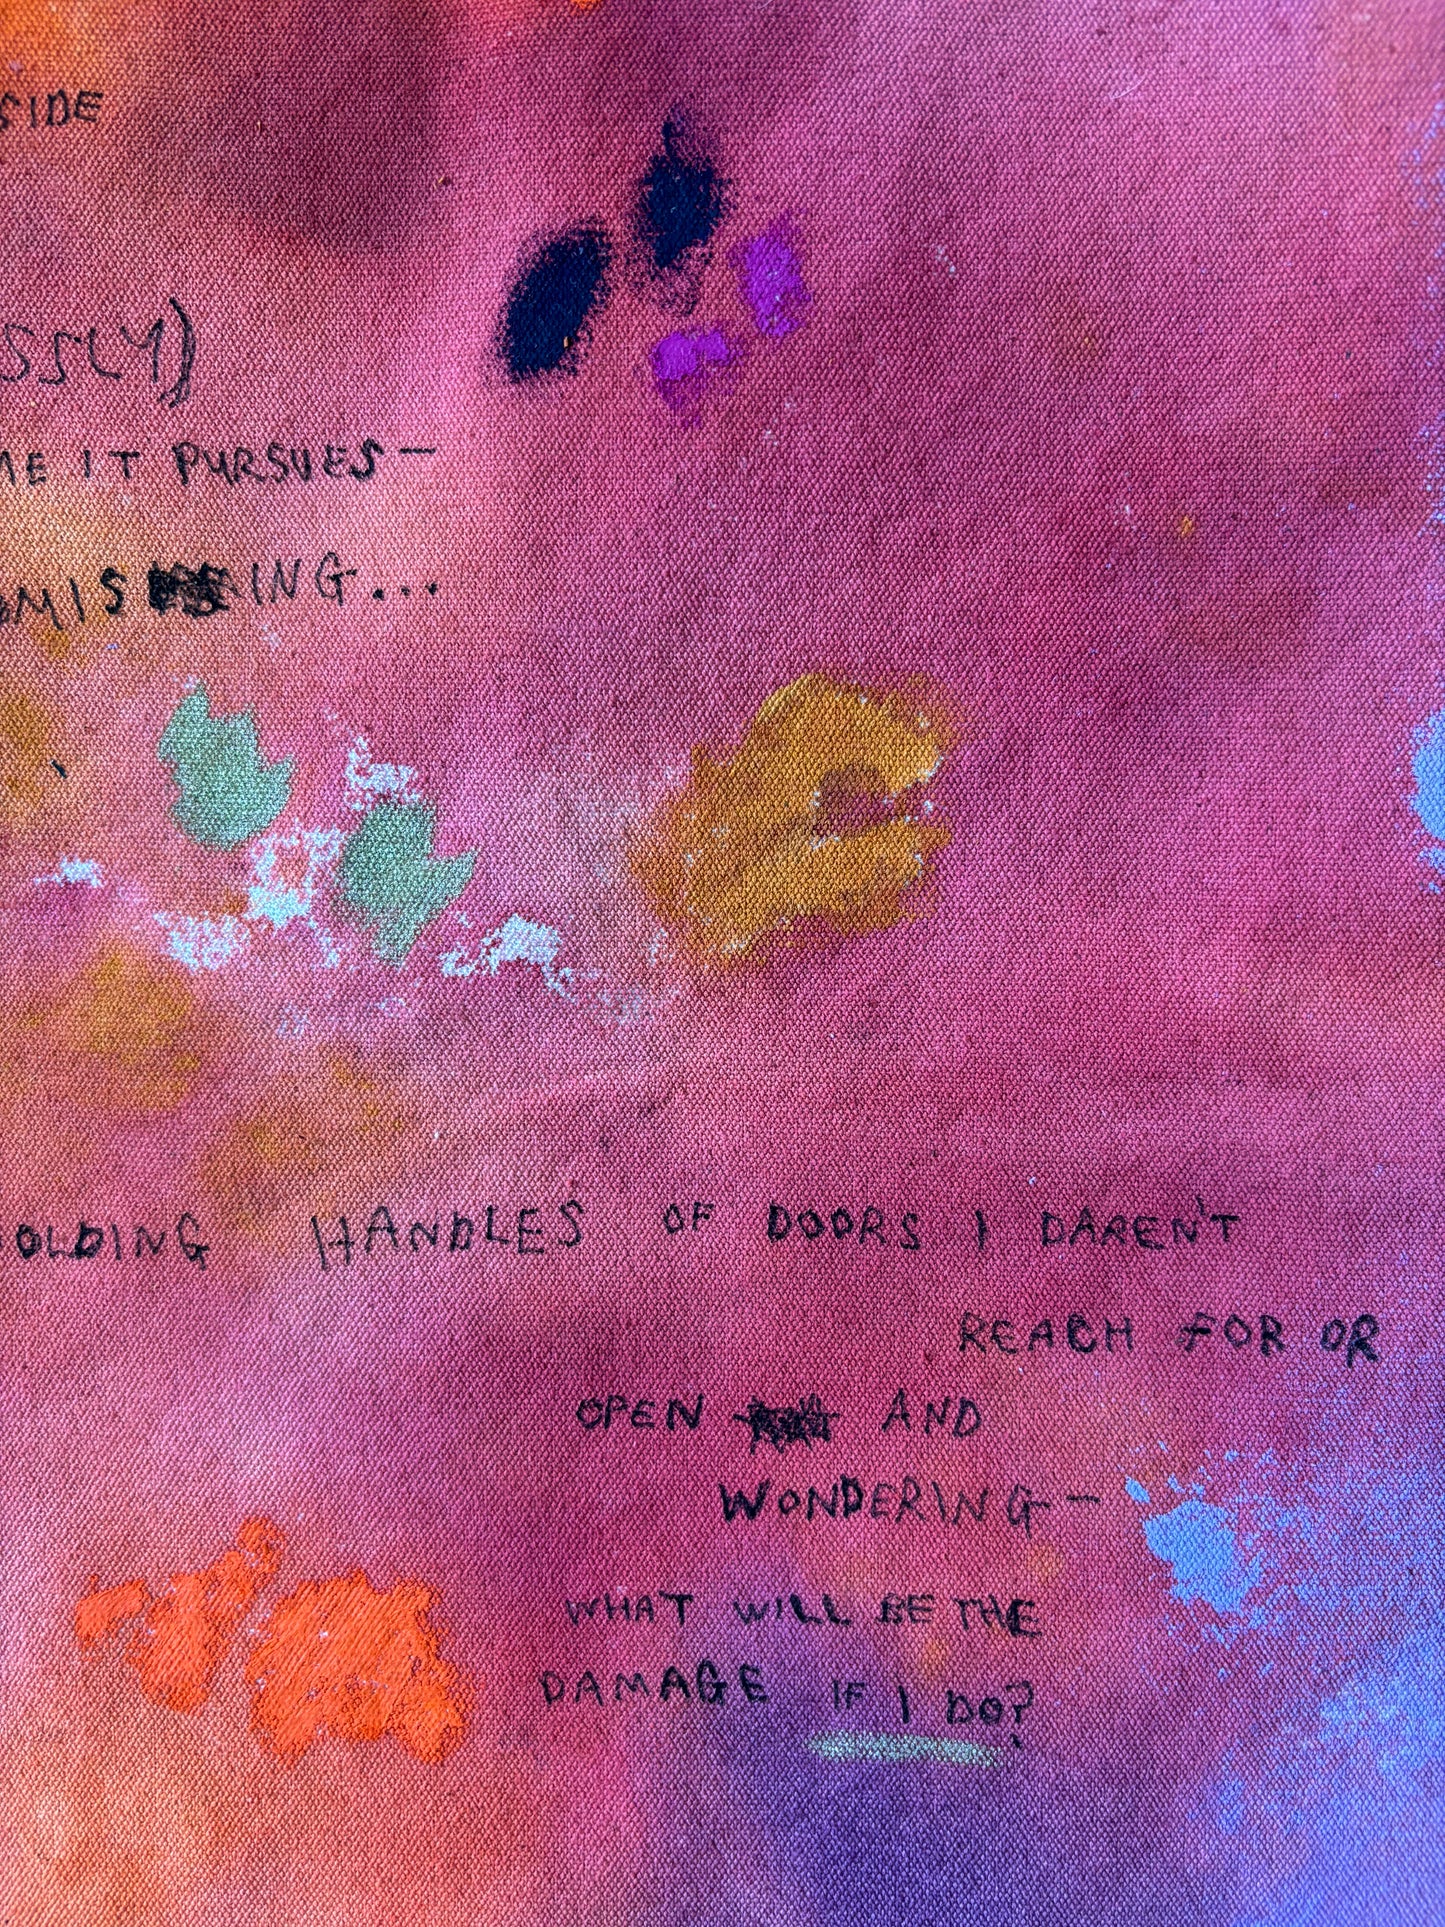 SIDE
SS(Y)
ME IT PURSUES—
OMIS ING...
OLDING HANDLES OF DOORS I DAREN'T
REACH FOR OR
OPEN AND
WONDERING—
WHAT WILL BE THE
DAMAGE IF I DO?